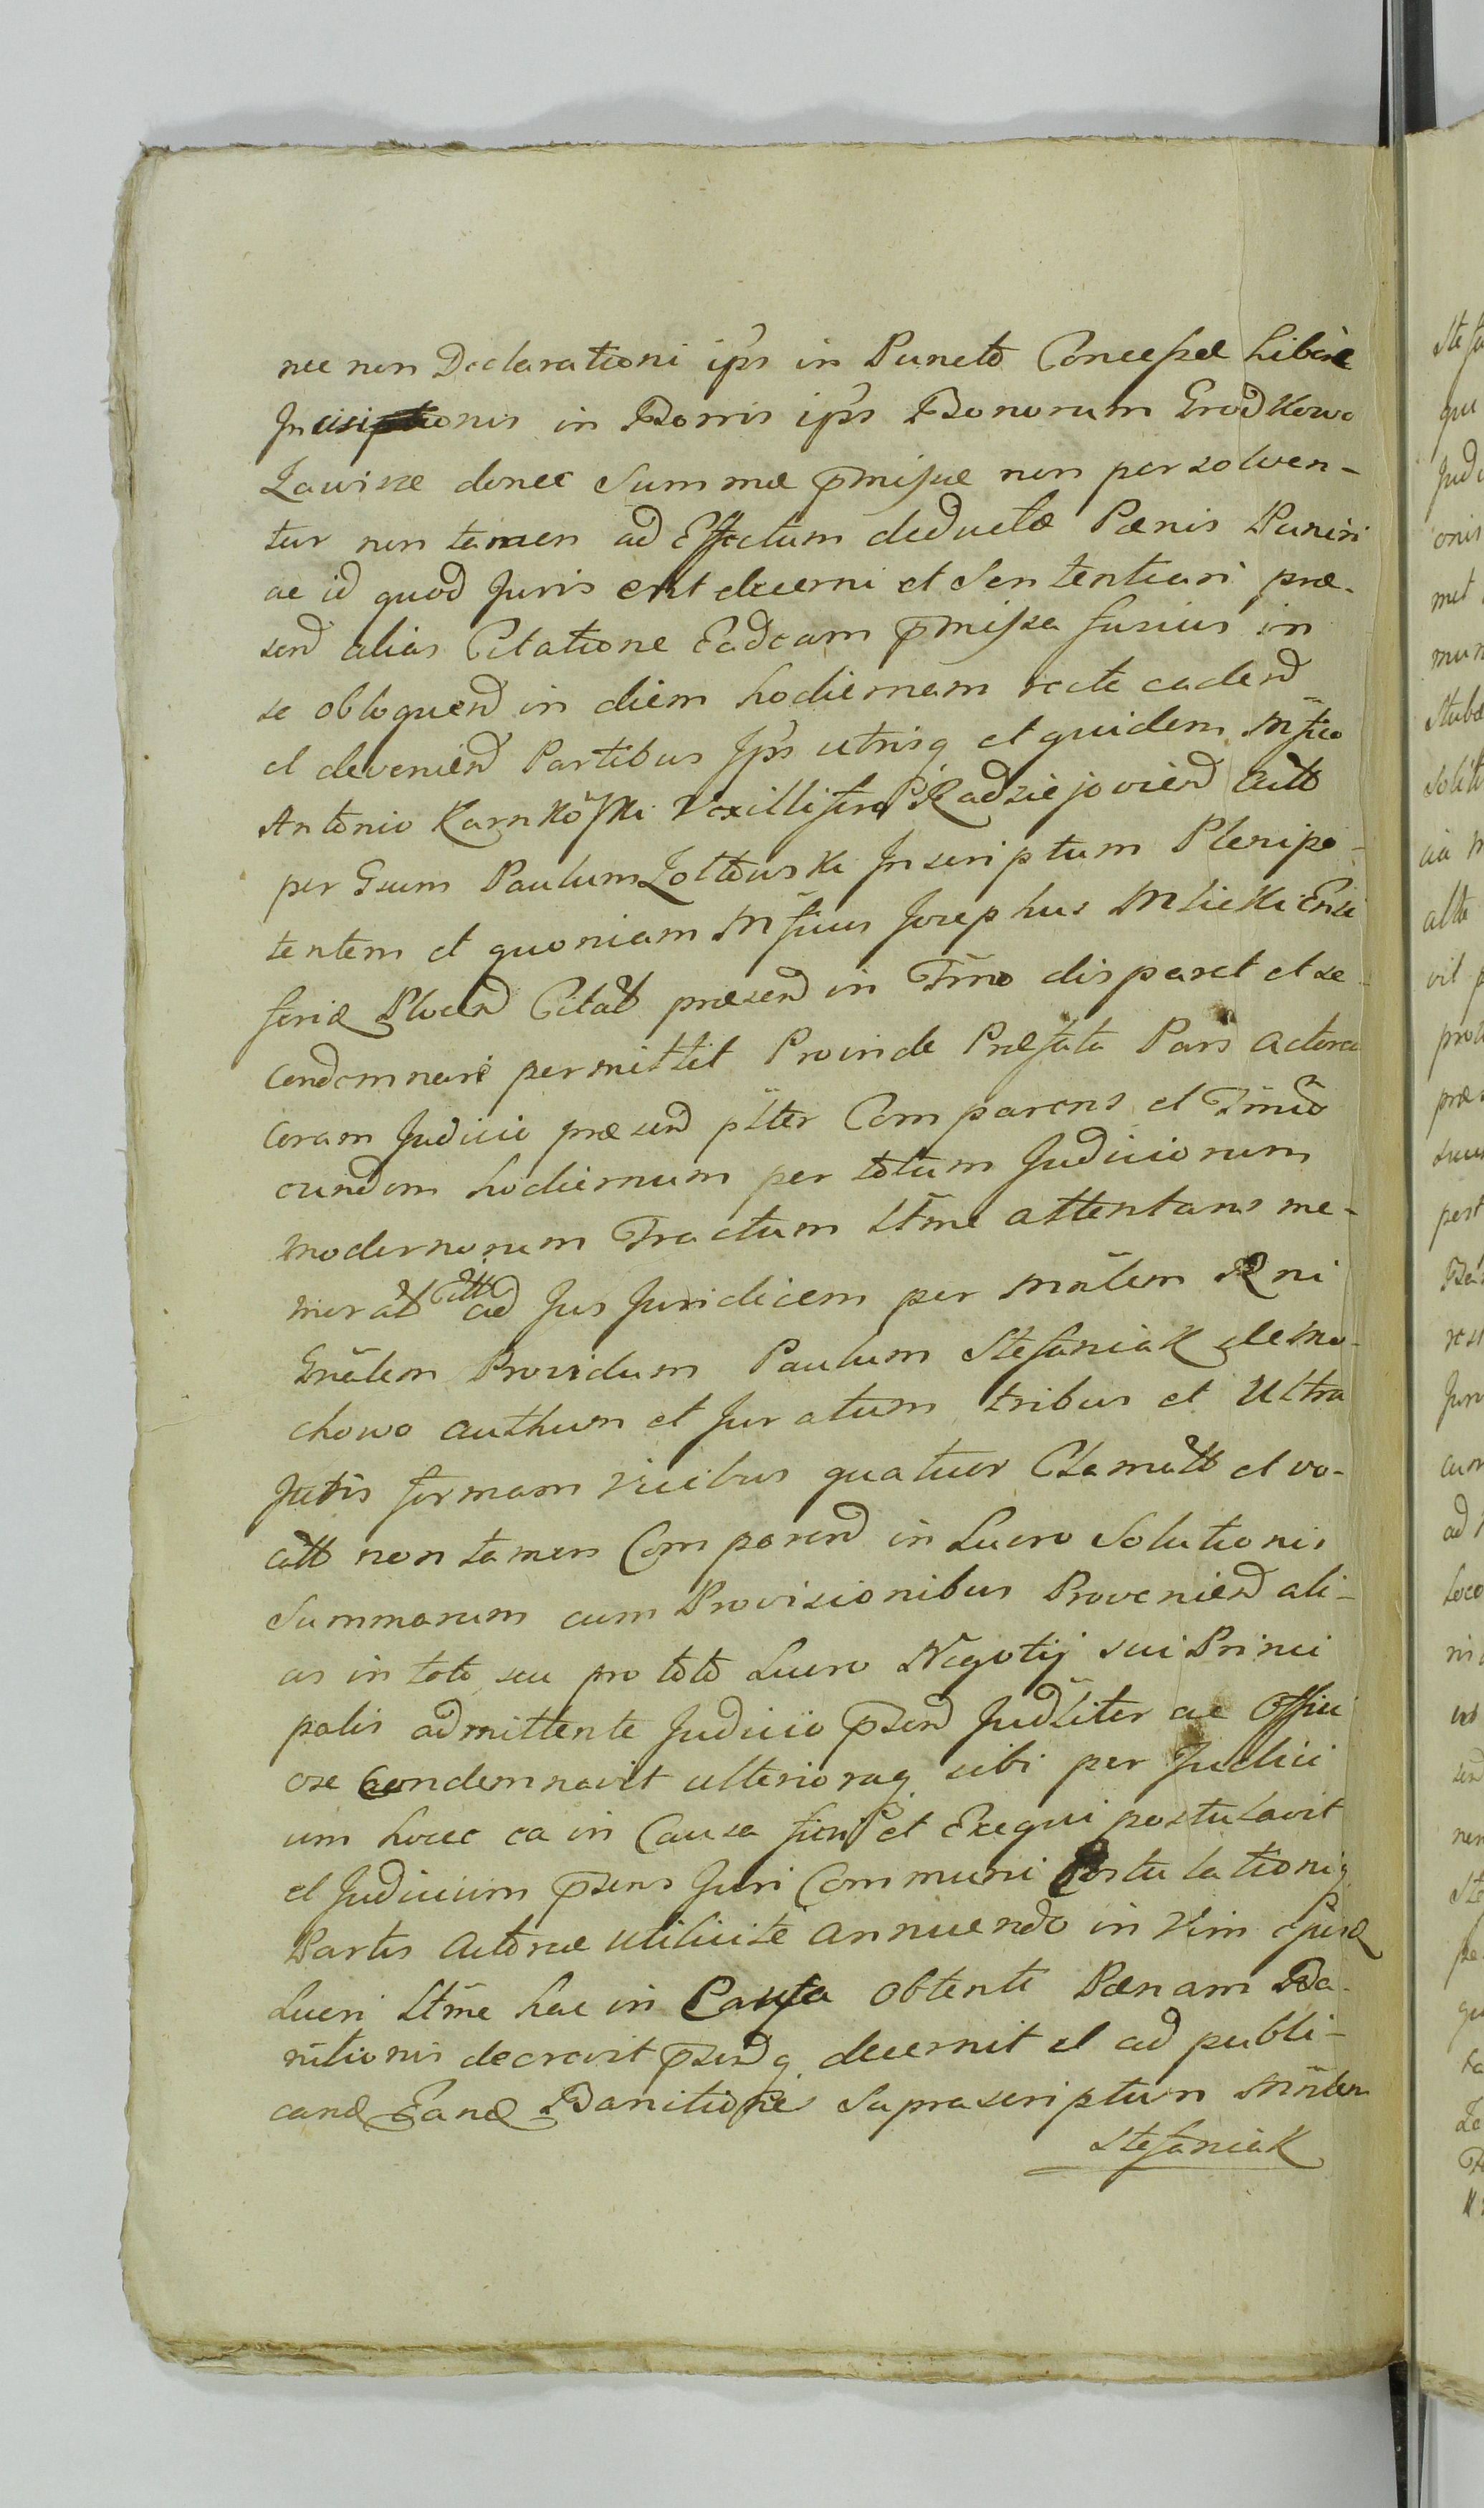 nec non Declarationi ips in Puncto Concessæ Liberæ
Incisionis in Borris ips Bonorum Grodkowo
Zawisze donec Summæ p̄missæ non persolven-
tur non tamen ad Effectum deductæ Pænis Puniri
ac id quod Juris erit decerni et Sententiari præ-
send alias Citatione Eadeam p̄missa fusius in
se obloquend in diem hodiernam recte cadend
et deveniend Partibus Ips utrisq et quidem Mfico
Antonio Karnkoski Vexillifero Radziejoviend Actt
per Gsum Paulum Zoltowski Inscriptum Plenipo-
tentem et quoniam Mficus Josephus Mlicki Ensi
feriæ Plocen Citatt præsend in Tmo disparet et se
condemnari permittit Proinde Præfata Pars Actorea
Coram Judicio præsend psltter Comparens et Tmū
eundem hodiernum per totum Judiciorum
modernorum Tractum Ltme attentans me-
mor att Citt ad Jus Juridicem per Mnlem Rni
Gnālem Providum Paulum Stefaniak de Mo-
chowo authum et Juratum tribus et Ultra
Jutis formam vicibus quatuor Clamatt et vo-
catt non tamen Comparend in Lucro Solutionis
Summarum cum Provisionibus Proveniend ali-
as in toto seu pro toto Lucro Negotij sui Princi
palis admittente Judicio p̄send Judliter ac Offici
ose Condemnavit ulterioraq sibi per Judici
um hocce ea in Causa fieri et Exequi postulavit
et Judicium p̄sens Juri Communi Postulationiq
Partis Actoræ utilicite annuendo in Vim ejusd
Lucri Ltme hac in Causa obtenti Pænam Ba-
nitionis decrevit p̄sendq decernit et ad publi-
cand Eand Banitione Suprascriptum Mnlem
Stefaniak